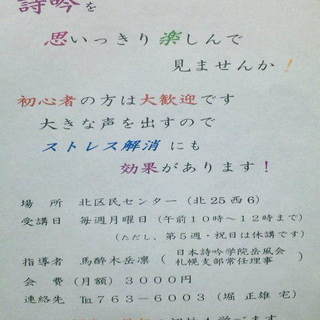 詩吟を
思いっきり楽しんで
見ませんか！
初心者の方は大歓迎です
大きな声を出すので
ストレス解消にも
効果があります！
場　所　北区民センター（北25西6）
受講日　毎週月曜日（午前10時～12時まで）
（ただし、第5週・祝日は休講です）
指導者　馬酔木岳凛（日本詩吟学院岳風会
札幌支部常任理事）
会　費（月額）3000円
連絡先　℡763－6003（堀 正雄 宅）